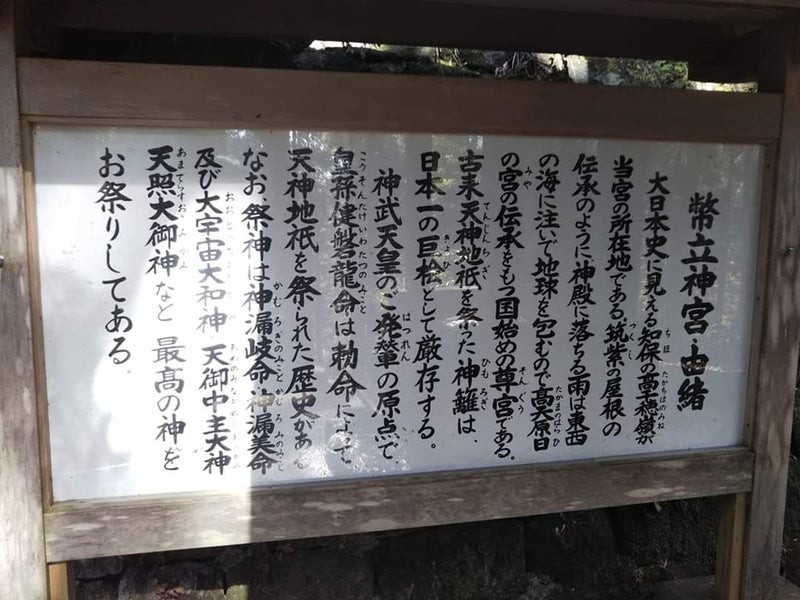 幣立神宮・由緒
大日本史に見える知保の高千穂嶺が
当宮の所在地である。筑紫の屋根の
伝承のように、神殿に落ちる雨は東西
の海に注いで地球を包むので高天原日
の宮の伝承をもつ国始めの尊宮である。
古来天神地祇を祭った神籬は、
日本一の巨桧として厳存する。
神武天皇のご発輦の原点で、
皇孫健磐龍命は勅命によって、
天神地祇を祭られた歴史がある。
なお、祭神は神漏岐命・神漏美命
及び大宇宙大和神 天御中主大神
天照大御神など 最高の神を
お祭りしてある。